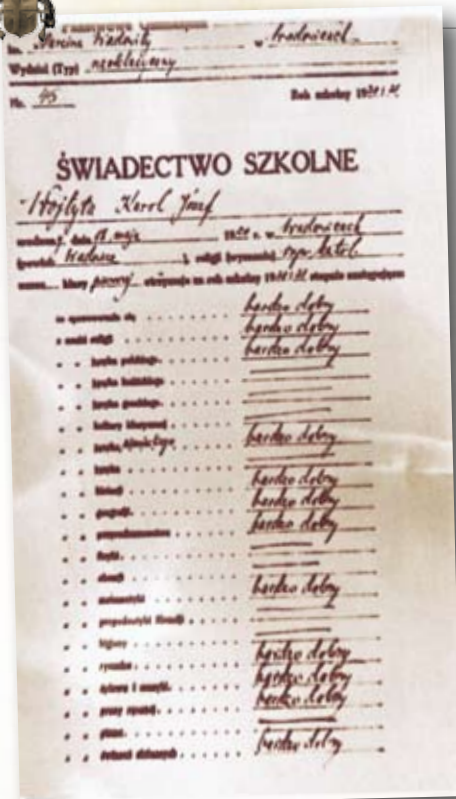 Państwowe Gimnazjum
im. Marcina Wadowity w Wadowicach
Wydział (Typ) neoklasyczny
Nr. 45 Rok szkolny 19
ŚWIADECTWO SZKOLNE
Wojtyła Karol Józef
urodzony dnia 18 maja 1920 r. w Wadowicach
(powiat Wadowice ), religii (wyznania) rzym. katol.
klasy otrzymuje na rok szkolny 19 stopnie następujące:
ze sprawowania się bardzo dobry
z nauki religii bardzo dobry
" " języka polskiego bardzo dobry
" " języka łacińskiego
" " języka greckiego
" " kultury klasycznej
" " języka bardzo dobry
" " języka
" " historji bardzo dobry
" " geografji bardzo dobry
" " przyrodoznawstwa bardzo dobry
" " fizyki
" " chemji
" " matematyki bardzo dobry
" " propedeutyki filozofji
" " higjeny
" " rysunku bardzo dobry
" " śpiewu i muzyki bardzo dobry
" " pracy ręcznej bardzo dobry
" " pisma
" " ćwiczeń cielesnych bardzo dobry